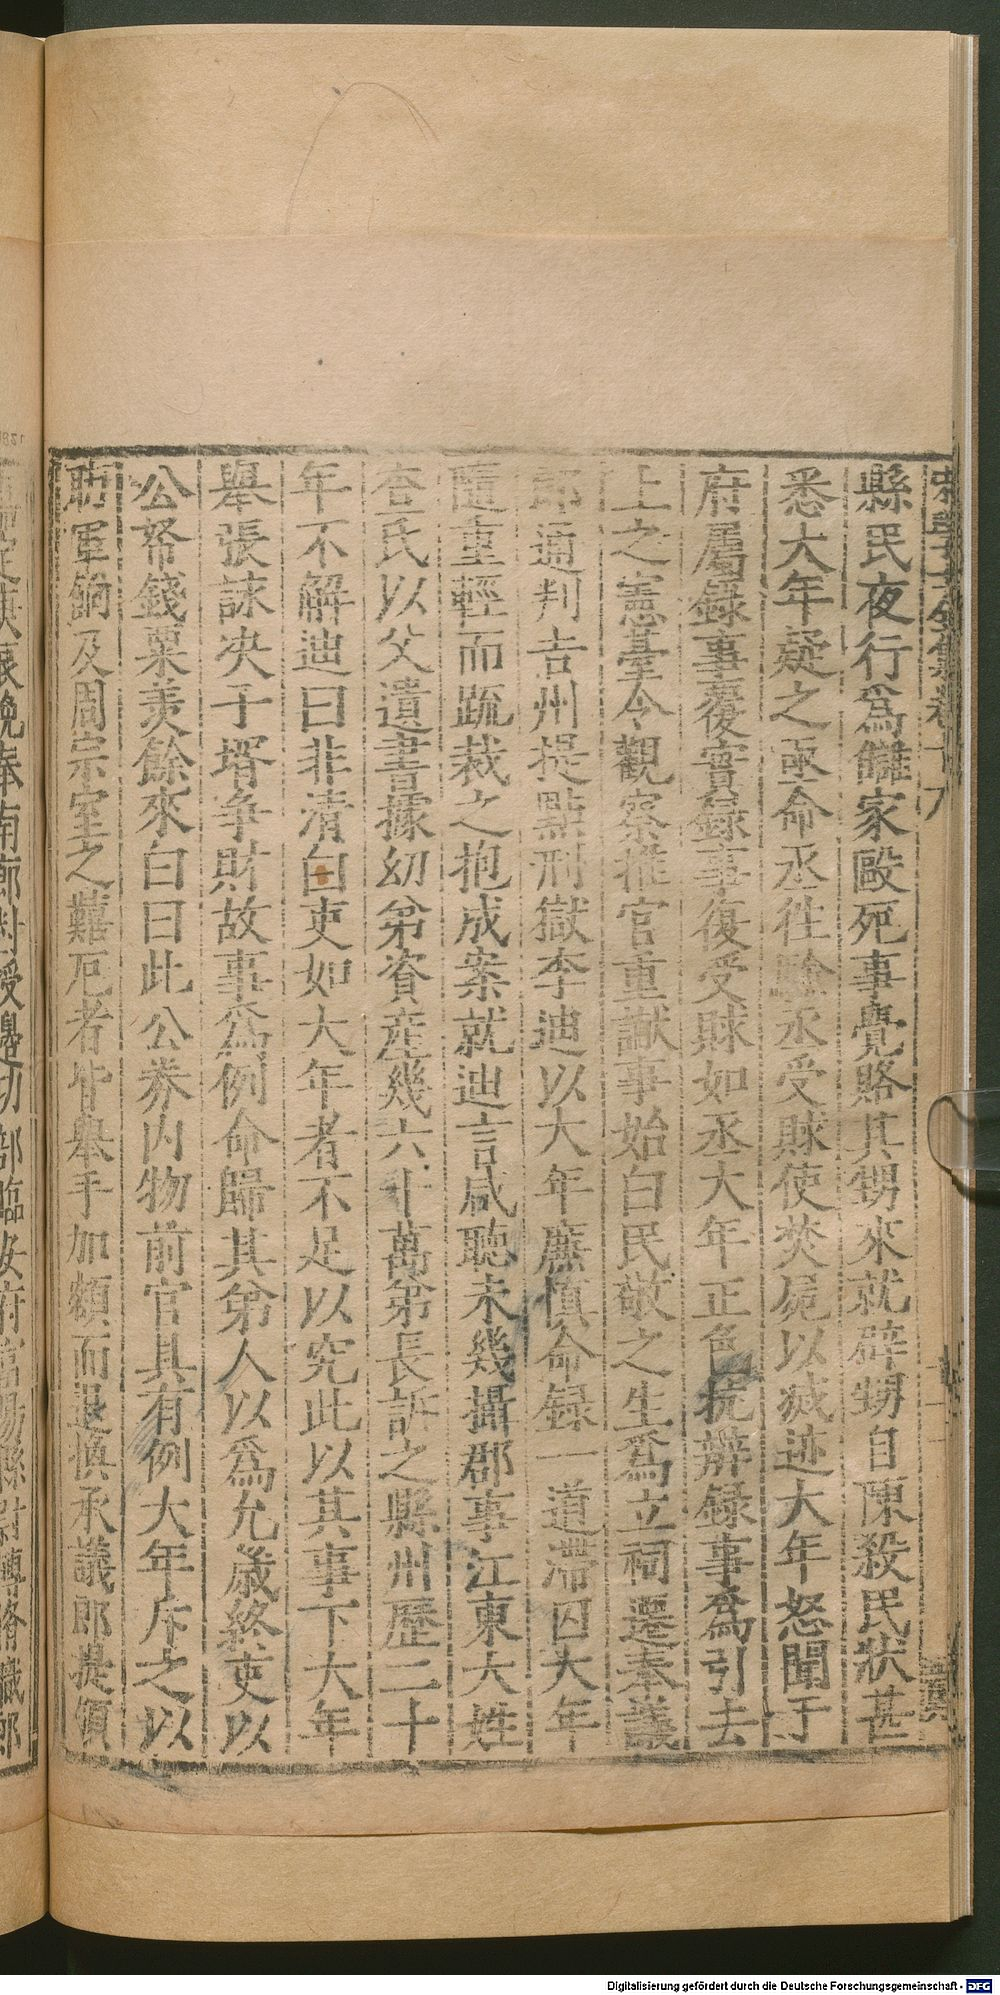 縣民夜行爲讎家毆死事覺賂其甥來就碎甥自陳殺民狀甚
悉大年疑之亟命丞往驗丞受賕使焚屍以滅迹大年怒聞于
府屬録事覆實録事復受賕如丞大年正色抗辨録事爲引去
上之憲臺令觀察推官重讞事始白民敬之生爲立祠遷奉議
郎通判吉州提點刑獄李迪以大年廉慎命録一道滯囚大年
隨重輕而疏裁之抱成案就迪言咸聽未幾攝郡事江東大姓
查氏以父遺書據幼弟資産幾六十萬弟長訴之縣州歷二十
年不解迪曰非清白吏如大年者不足以究此以其事下大年
舉張詠决于壻争財故事爲例命歸其弟人以爲允歲終吏以
公帑錢粟羡餘來白曰此公券内物前官具有例大年斥之以
助軍餉及周宗室之囏厄者皆舉手加額而退慎承議郎提領
Digitalisierung gefördert durch die Deutsche Forschungsgemeinschaft - DFG